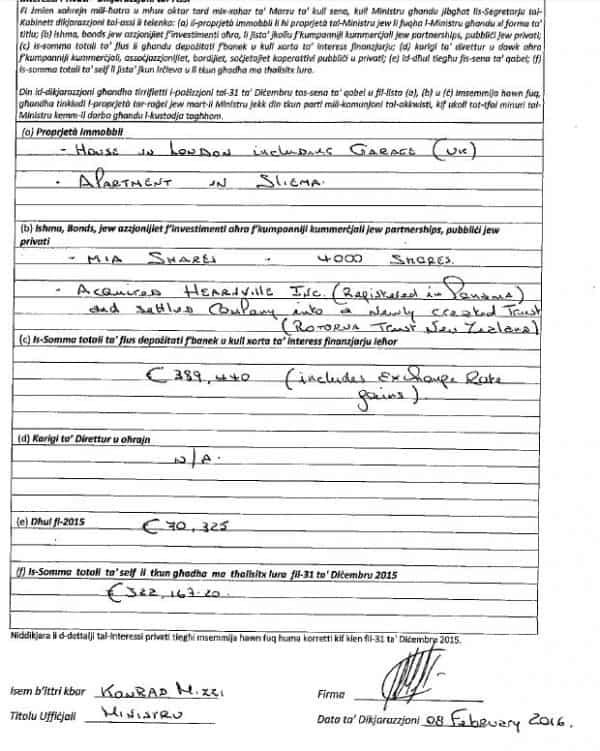 Fi żmien xahrejn mill-ħatra u mhux aktar tard mix-xahar ta' Marzu ta' kull sena, kull Ministru għandu jibgħat lis-Segretarju tal-
Kabinett dikjarazzjoni tal-assi li telenka: (a) il-proprjetà immobbli li hi proprjetà tal-Ministru jew li fuqha l-Ministru għandu xi forma ta'
titlu; (b) ishma, bonds jew azzjonijiet f'investimenti oħra, li jista' jkollu f'kumpanniji kummerċjali jew partnerships, pubbliċi jew privati;
(c) is-somma totali ta' flus li għandu depożitati f'banek u kull xorta ta' interess finanzjarju; (d) karigi ta' direttur u dawk oħra
f'kumpanniji kummerċjali, assoċjazzjonijiet, bordijiet, soċjetajiet koperattivi pubbliċi u privati; (e) id-dħul tiegħu fis-sena ta' qabel; (f)
is-somma totali ta' self li jista' jkun irċieva u li tkun għadha ma tħallsitx lura.
Din id-dikjarazzjoni għandha tirrifletti l-pożizzjoni tal-31 ta' Diċembru tas-sena ta' qabel u fil-lista (a), (b) u (c) imsemmija hawn fuq,
għandha tinkludi l-proprjetà tar-raġel jew mart il-Ministru jekk din tkun parti mill-komunjoni tal-akkwisti, kif ukoll tat-tfal minuri tal-
Ministru kemm-il darba għandu l-kustodja tagħhom.
(a) Proprjetà Immobbli
- House in London including Garage (UK)
- Apartment in Sliema.
(b) Ishma, Bonds, jew azzjonijiet f'investimenti oħra f'kumpanniji kummerċjali jew partnerships, pubbliċi jew
privati
- MIA Shares - 4000 Shares.
- Acquired Hearnville Inc. (Registered in Panama)
and settled Company into a newly created Trust
(Rotorua Trust New Zealand)
(c) Is-Somma totali ta' flus depożitati f'banek u kull xorta ta' interess finanzjarju ieħor
€ 389,440 (includes Exchange Rate
gains).
(d) Karigi ta' Direttur u oħrajn
N/A.
(e) Dħul fl-2015 € 70,325
(f) Is-Somma totali ta' self li tkun għadha ma tħallsitx lura fil-31 ta' Diċembru 2015
€ 322,167.20.
Niddikjara li d-dettalji tal-interessi privati tiegħi msemmija hawn fuq huma korretti kif kien fil-31 ta' Diċembru 2015.
Isem b'ittri kbar KONRAD MIZZI Firma
Titolu Uffiċjali MINISTRU Data ta' Dikjarazzjoni 08 February 2016.